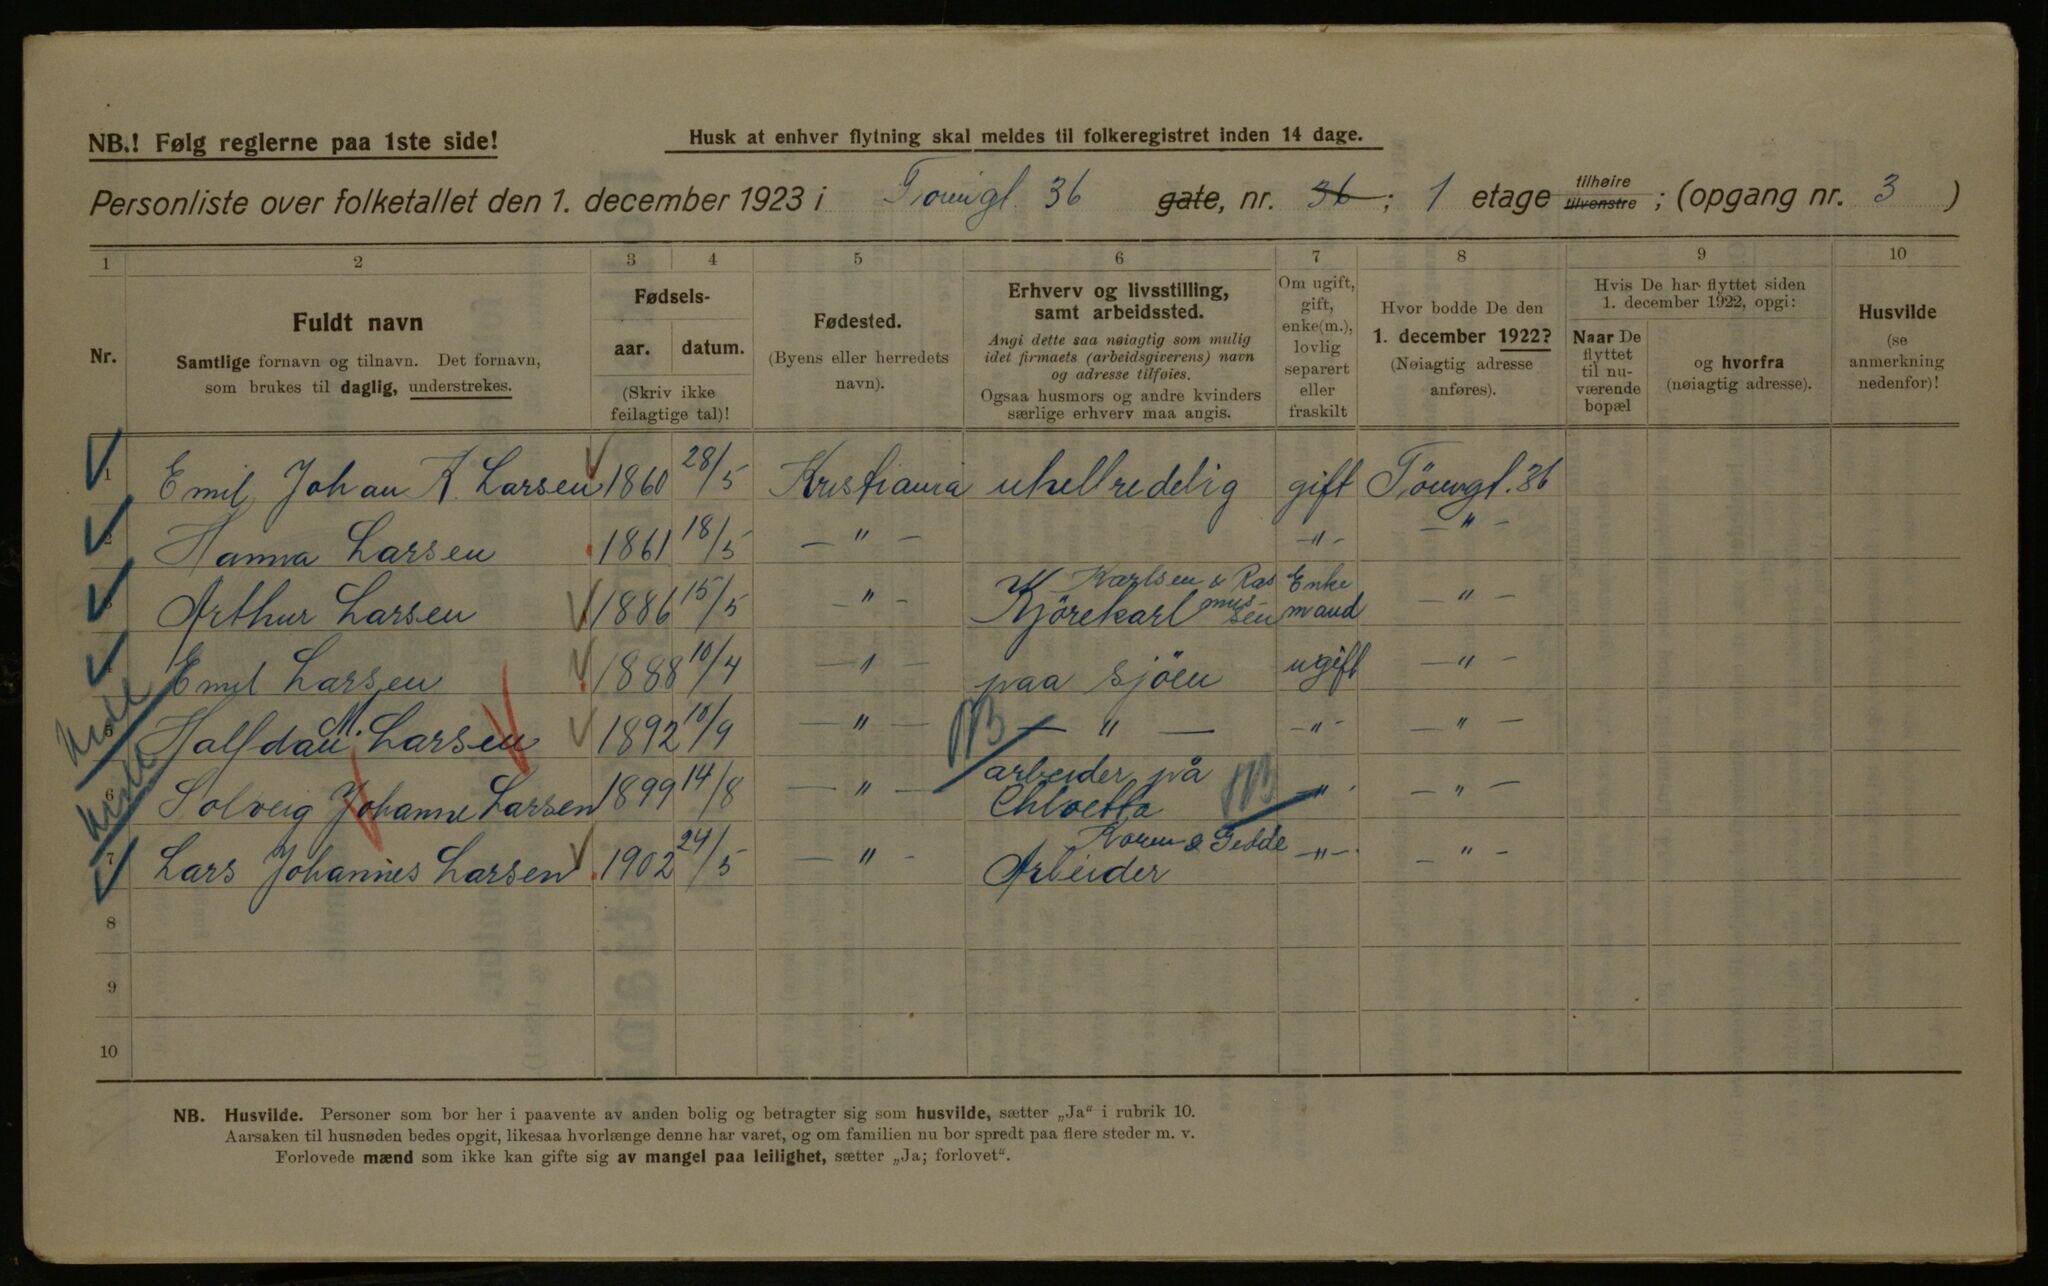 NB.! Følg reglerne paa 1ste side!
Husk at enhver flytning skal meldes til folkeregistret inden 14 dage.
Personliste over folketallet den 1. december 1923 i Tømgt. 36 gate, nr. 36; 1 etage tilhøire tilvenstre; (opgang nr. 3)
1 2 3 4 5 6 7 8 9 10
Nr.
Fuldt navn
Samtlige fornavn og tilnavn. Det fornavn,
som brukes til daglig, understrekes.
Fødsels-
aar. datum.
(Skriv ikke
feilagtige tal)!
Fødested.
(Byens eller herredets
navn).
Erhverv og livsstilling,
samt arbeidssted.
Angi dette saa nøiagtig som mulig
idet firmaets (arbeidsgiverens) navn
og adresse tilføies.
Ogsaa husmors og andre kvinders
særlige erhverv maa angis.
Om ugift,
gift,
enke(m.),
lovlig
separert
eller
fraskilt
Hvor bodde De den
1. december 1922?
(Nøiagtig adresse
anføres).
Hvis De har flyttet siden
1. december 1922, opgi:
Naar De
flyttet
til nu-
værende
bopæl
og hvorfra
(nøiagtig adresse).
Husvilde
(se
anmerkning
nedenfor)!
1 Emil Johan A. Larsen 1860 28/5 Kristiania uhelbredelig gift Tömgt. 36
2 Hanna Larsen 1861 18/5 — " — — " — — " —
3 Arthur Larsen 1886 15/5 — " — Kjörekarl Karlsen & Rasmussen Enkemand — " —
4 Emil Larsen 1888 10/4 — " — paa sjöen ugift — " —
5 Halfdan M. Larsen 1892 10/9 — " — NB — " — — " — — " —
6 Solveig Johanne Larsen 1899 14/8 — " — arbeider på NB " — " —
7 Lars Johannes Larsen 1902 24/5 — " — Arbeider — " — — " —
8
9
10
NB. Husvilde. Personer som bor her i paavente av anden bolig og betragter sig som husvilde, sætter „Ja" i rubrik 10.
Aarsaken til husnøden bedes opgit, likesaa hvorlænge denne har varet, og om familien nu bor spredt paa flere steder m. v.
Forlovede mænd som ikke kan gifte sig av mangel paa leilighet, sætter „Ja; forlovet".